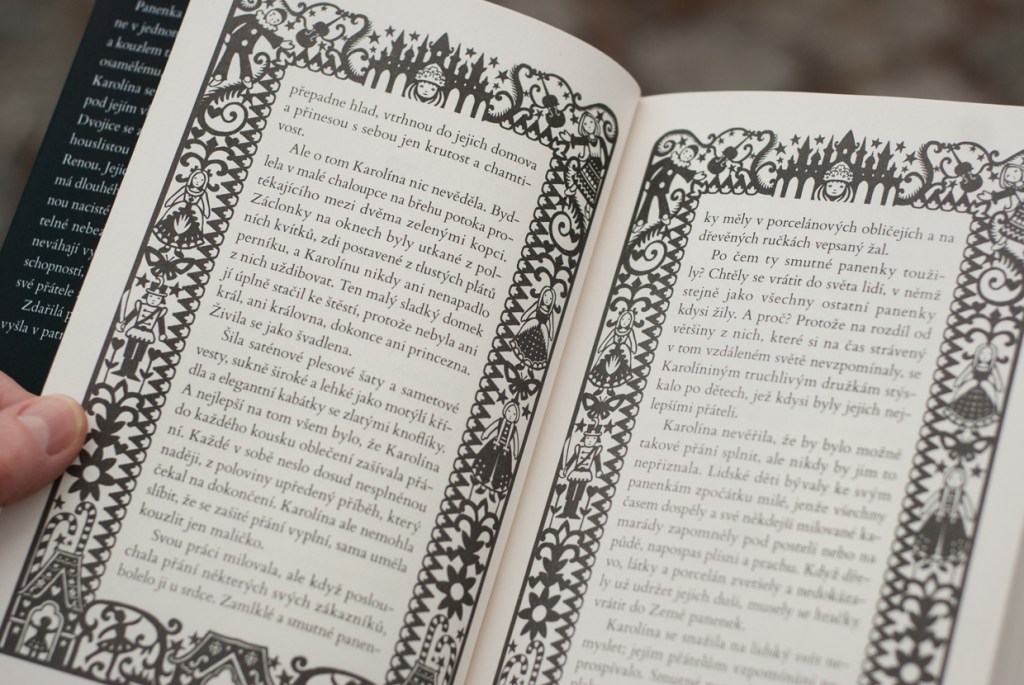 Panenka
ne v jednom
a kouzlem
osamělému
Karolína se
pod jejím
Dvojice se
houslistou
Renou. Jeji
má dlouhé
nou nacisté
telné nebez
neváhají vy
schopností,
své přátele
Zdařilá
vyšla v
přepadne hlad, vtrhnou do jejich domova
a přinesou s sebou jen krutost a chamti-
vost.
Ale o tom Karolína nic nevěděla. Byd-
lela v malé chaloupce na břehu potoka pro-
tékajícího mezi dvěma zelenými kopci.
Záclonky na oknech byly utkané z pol-
ních kvítků, zdi postavené z tlustých plátů
perníku, a Karolínu nikdy ani nenapadlo
z nich uždibovat. Ten malý sladký domek
jí úplně stačil ke štěstí, protože nebyla ani
král, ani královna, dokonce ani princezna.
Živila se jako švadlena.
Šila saténové plesové šaty a sametové
vesty, sukně široké a lehké jako motýlí kří-
dla a elegantní kabátky se zlatými knoflíky.
A nejlepší na tom všem bylo, že Karolína
do každého kousku oblečení zašívala přá-
ní. Každé v sobě neslo dosud nesplněnou
naději, z poloviny upředený příběh, který
čekal na dokončení. Karolína ale nemohla
slíbit, že se zašité přání vyplní, sama uměla
kouzlit jen maličko.
Svou práci milovala, ale když poslou-
chala přání některých svých zákazníků,
bolelo ji u srdce. Zamlklé a smutné panen-
ky měly v porcelánových obličejích a na
dřevěných ručkách vepsaný žal.
Po čem ty smutné panenky touži-
ly? Chtěly se vrátit do světa lidí, v němž
stejně jako všechny ostatní panenky
kdysi žily. A proč? Protože na rozdíl od
většiny z nich, které si na čas strávený
v tom vzdáleném světě nevzpomínaly, se
Karolíniným truchlivým družkám stýs-
kalo po dětech, jež kdysi byly jejich nej-
lepšími přáteli.
Karolína nevěřila, že by bylo možné
takové přání splnit, ale nikdy by jim to
nepřiznala. Lidské děti bývaly ke svým
panenkám zpočátku milé, jenže všechny
časem dospěly a své někdejší milované ka-
marády zapomněly pod postelí nebo na
půdě, napospas plísni a prachu. Když dře-
vo, látky a porcelán zvetšely a nedokáza-
ly už udržet jejich duši, musely se hračky
vrátit do Země panenek.
Karolína se snažila na lidský svět ne-
myslet; jejím přátelům vzpomínání ne-
prospívalo. Smutné